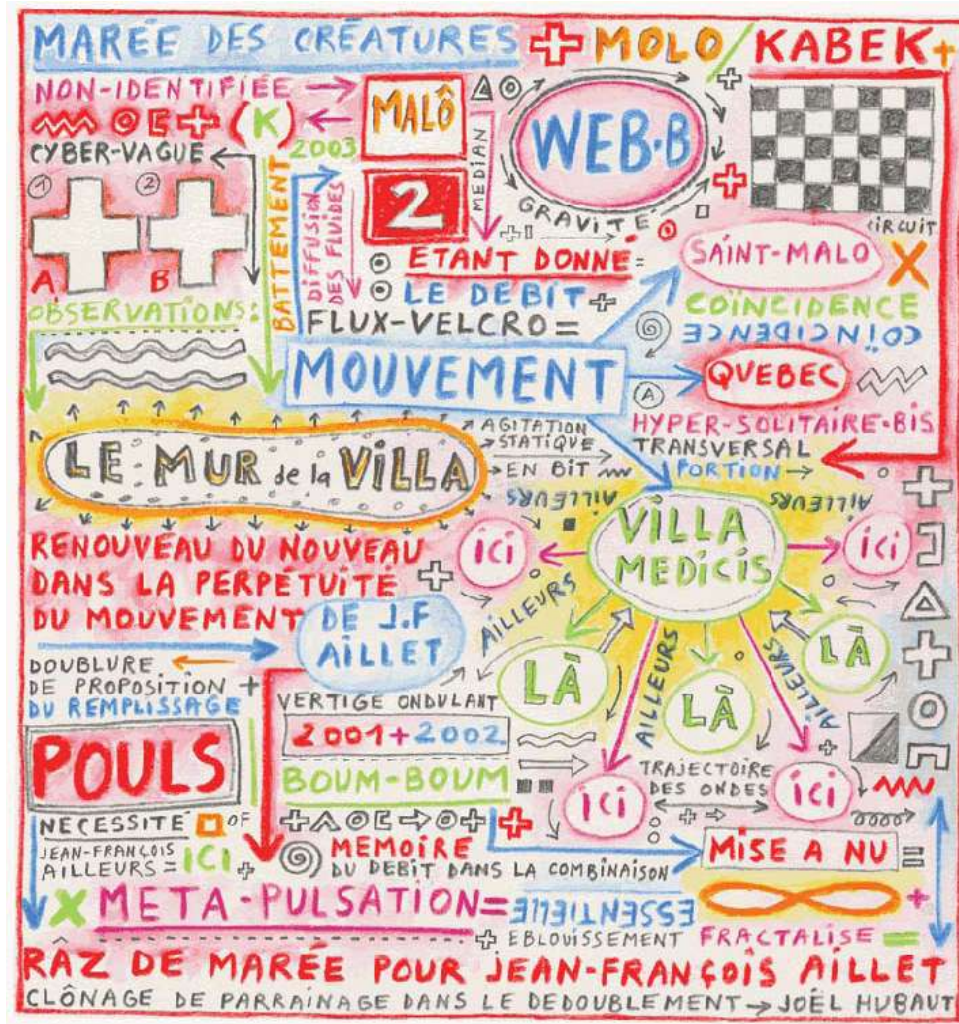 MARÉE DES CRÉATURES + MOLO / KABEK +
NON-IDENTIFIÉE →
(K)
MALÔ
WEB·B
GRAVITÉ
CYBER-VAGUE
2003
MEDIAN
1 2
A B
BATTEMENT
DIFFUSION
DES FLUIDES
2
CIRCUIT
SAINT-MALO X
ÉTANT DONNÉ =
LE DEBIT +
FLUX-VELCRO =
OBSERVATIONS:
COÏNCIDENCE
COÏNCIDENCE
MOUVEMENT
QUEBEC
A
HYPER-SOLITAIRE-BIS
AGITATION
STATIQUE
EN BIT
TRANSVERSAL
PORTION →
LE MUR de la VILLA
AILLEURS
AILLEURS
VILLA
MEDICIS
ici
ici
RENOUVEAU DU NOUVEAU
DANS LA PERPÉTUITÉ
DU MOUVEMENT
DE J.F
AILLET
AILLEURS
AILLEURS
AILLEURS
LÀ
LÀ
LÀ
DOUBLURE
DE PROPOSITION +
DU REMPLISSAGE
VERTIGE ONDULANT
2001+2002
BOUM-BOUM
POULS
TRAJECTOIRE
DES ONDES
ici
ici
NÉCESSITÉ OF
JEAN-FRANÇOIS
AILLEURS = ICI +
MÉMOIRE
DU DEBIT DANS LA COMBINAISON
MISE A NU =
X META-PULSATION =
ESSENTIELLE
+ EBLOUISSEMENT FRACTALISE =
RÂZ DE MARÉE POUR JEAN-FRANÇOIS AILLET
CLÔNAGE DE PARRAINAGE DANS LE DEDOUBLEMENT → JOËL HUBAUT